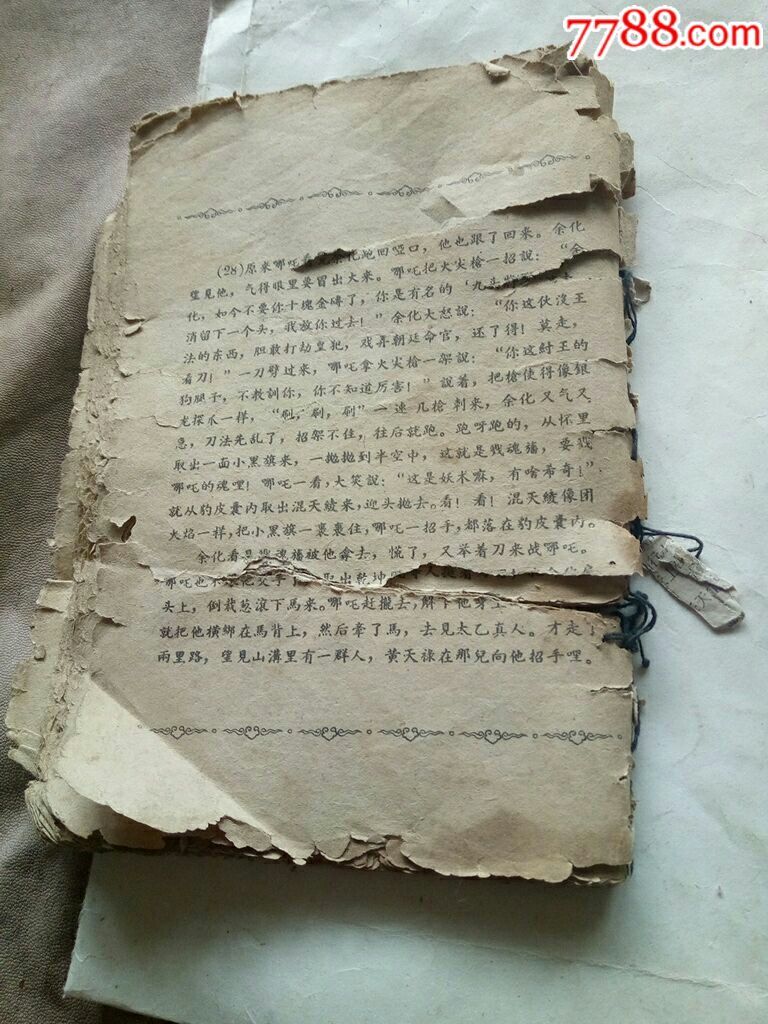 7788.com
(28)原来哪吒余化跑回哑口,他也跟了回来。余化
望見他,气得眼里要冒出火来。哪吒把火尖槍一招說:“余
化,如今不要你十塊金磚了,你是有名的‘九头
消留下一个头,我放你过去!”余化大怒說:“你这伙沒王
法的东西,胆敢打劫皇犯,戏弄朝廷命官,还了得!莫走,
看刀!”一刀劈过来,哪吒拿火尖槍一架說:“你这紂王的
狗腿子,不教訓你,你不知道厉害!”說着,把槍使得像銀
龙探爪一样,“刷,刷,刷”一連几槍刺来,余化又气又
急,刀法先乱了,招架不住,往后就跑。跑呀跑的,从怀里
取出一面小黑旗来,一拋拋到半空中,这就是戮魂旛,要戮
哪吒的魂哩!哪吒一看,大笑說:“这是妖术嘛,有啥希奇!”
就从豹皮囊內取出混天綾来,迎头拋去。看!看!混天綾像团
火焰一样,把小黑旗一裹裹住,哪吒一招手,都落在豹皮囊內。
余化看是戮魂旛被他拿去,慌了,又举着刀来战哪吒。
哪吒也不取出乾坤
头上,倒栽葱滾下馬来。哪吒赶攏去,解下他身上
就把他横綁在馬背上,然后牵了馬,去見太乙真人。才走了
兩里路,望見山溝里有一群人,黃天祿在那兒向他招手哩。